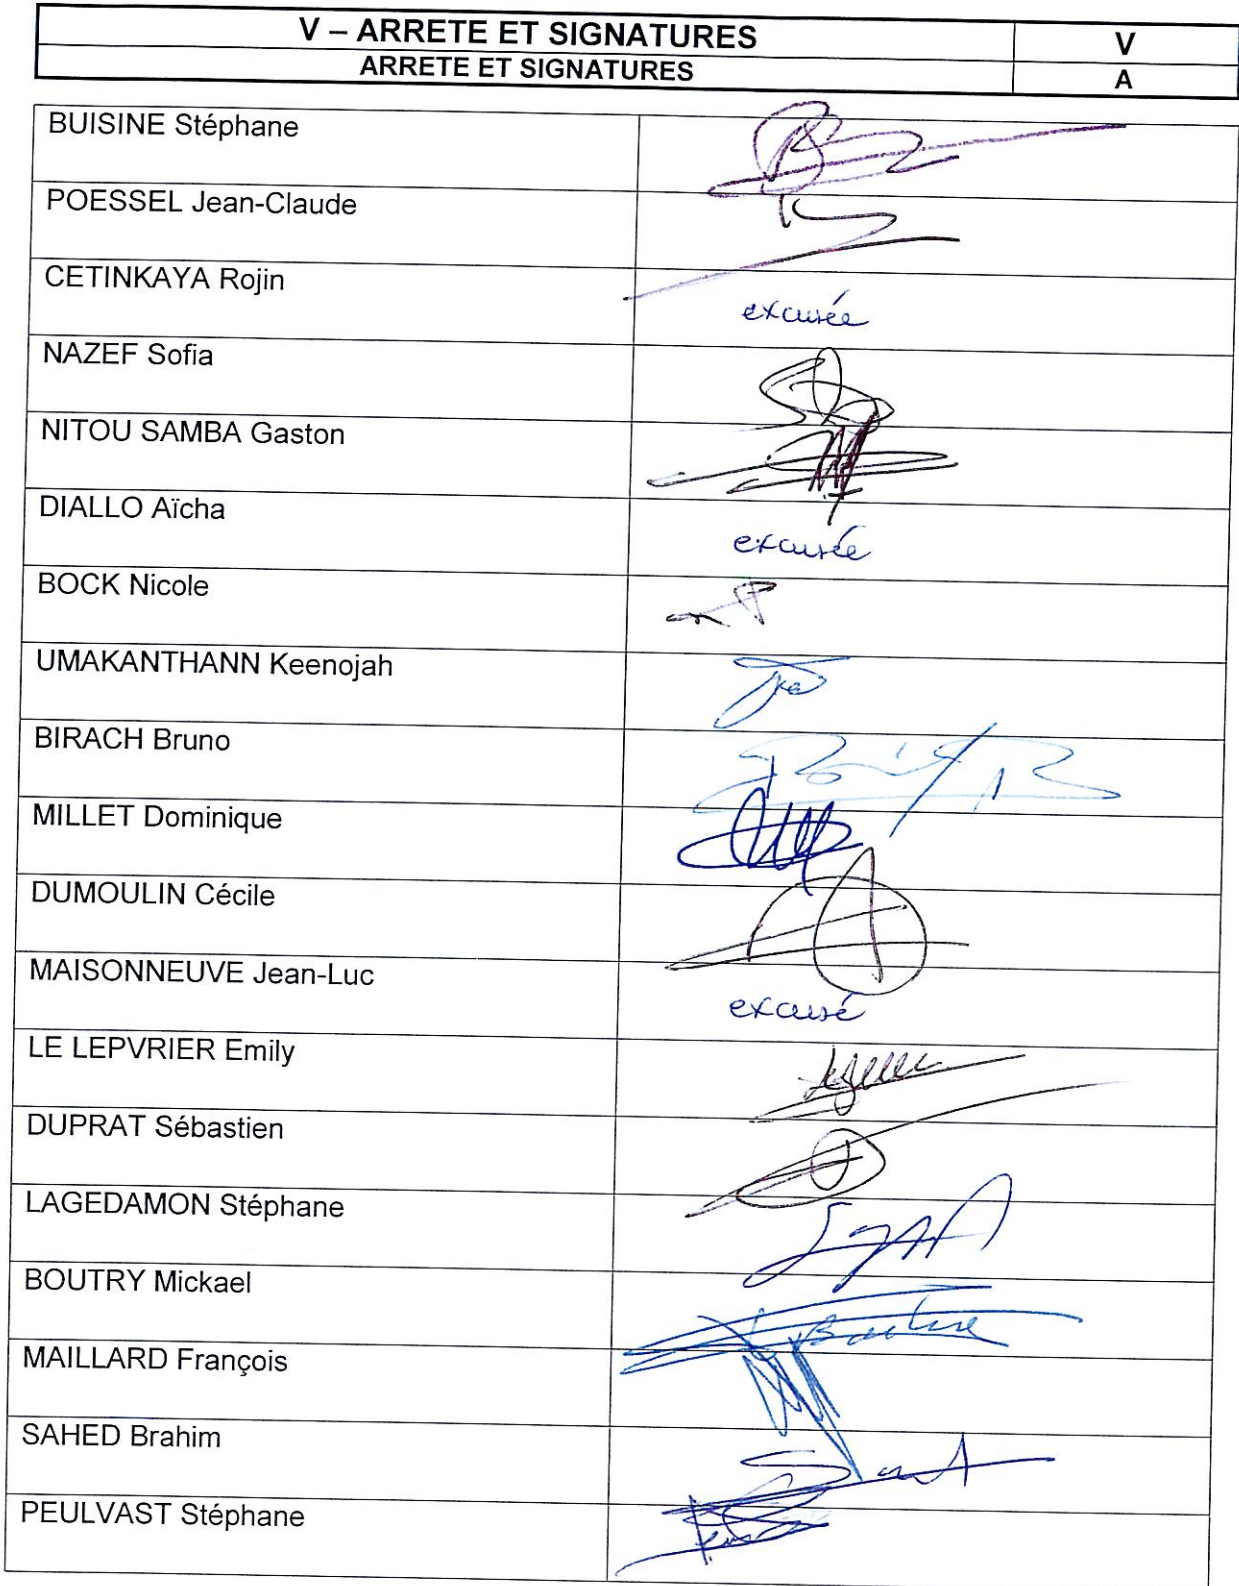 V – ARRETE ET SIGNATURES V
ARRETE ET SIGNATURES A
BUISINE Stéphane
POESSEL Jean-Claude
CETINKAYA Rojin excusée
NAZEF Sofia
NITOU SAMBA Gaston
DIALLO Aïcha excusée
BOCK Nicole
UMAKANTHANN Keenojah
BIRACH Bruno
MILLET Dominique
DUMOULIN Cécile
MAISONNEUVE Jean-Luc excusé
LE LEPVRIER Emily
DUPRAT Sébastien
LAGEDAMON Stéphane
BOUTRY Mickael
MAILLARD François
SAHED Brahim
PEULVAST Stéphane